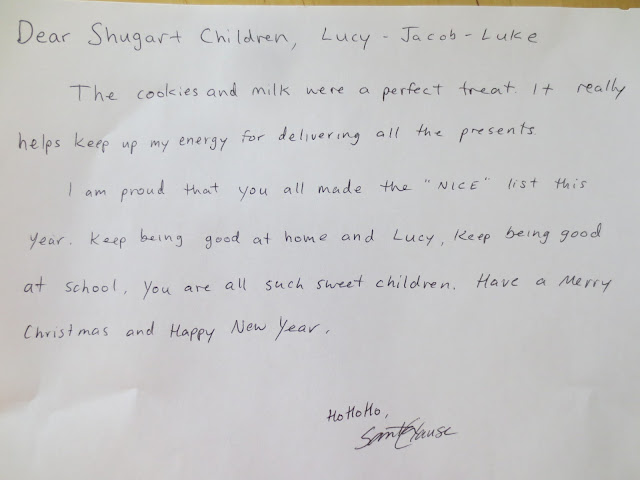 Dear Shugart Children, Lucy - Jacob - Luke
The cookies and milk were a perfect treat. It really
helps keep up my energy for delivering all the presents.
I am proud that you all made the "NICE" list this
year. Keep being good at home and Lucy, keep being good
at school. You are all such sweet children. Have a Merry
Christmas and Happy New Year.
HoHoHo,
Santa Clause